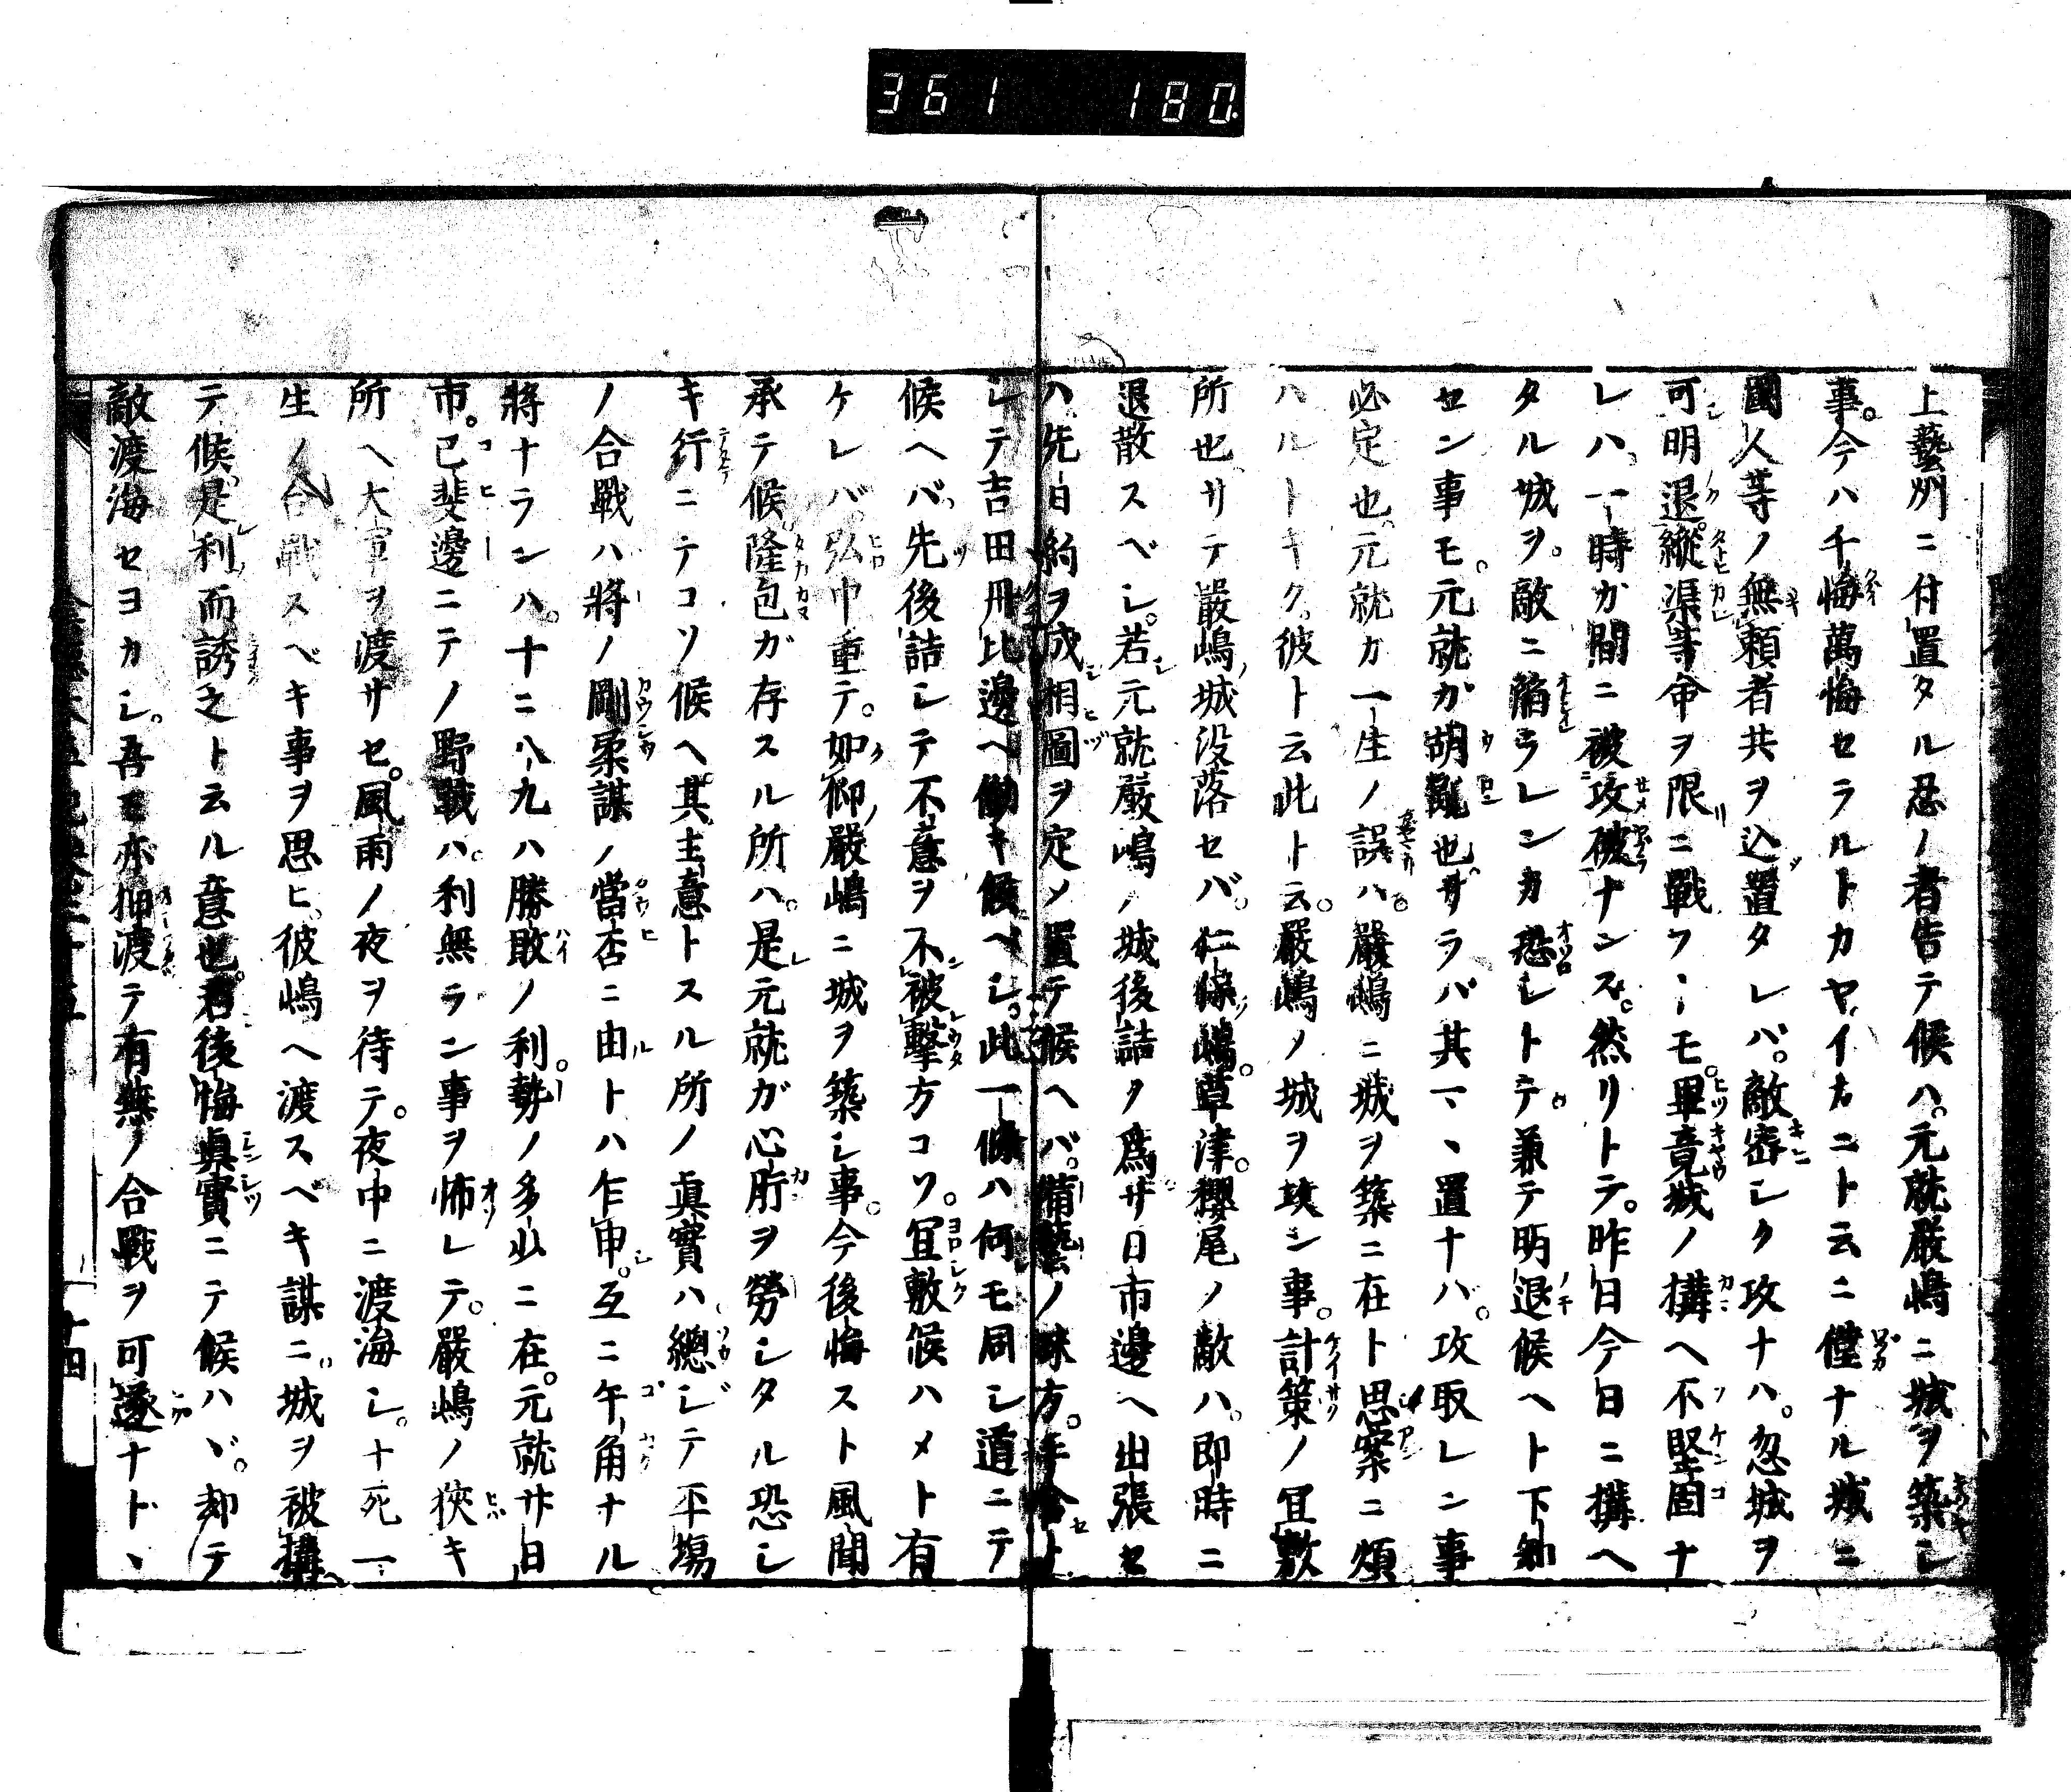 361 180
上藝州ニ付置タル忍ノ者告テ候ハ。元就嚴嶋ニ城ヲ築シ
事。今ハ千悔萬悔セラルトカヤ、イカニト云ニ僅ナル城ニ
國人等ノ無頼者共ヲ込置タレバ。敵密シク攻ナハ。忽城ヲ
可明退。縱渠等命ヲ限ニ戰フトモ。畢竟城ノ搆ヘ不堅固ナ
レハ。一時カ間ニ被攻破ナンス。然リトテ。昨日今日ニ搆ヘ
タル城ヲ。敵ニ䧟ラレンカ恐レトテ兼テ明退候ヘト下知
セン事モ。元就カ胡亂也。サラバ其マヽ置ナハ。攻取レン事
必定也。元就カ一生ノ誤ハ嚴嶋ニ城ヲ築ニ在ト思案ニ煩
ハルトキク。彼ト云此ト云。嚴嶋ノ城ヲ攻ン事。計策ノ冝敷
所也。サテ嚴嶋ノ城没落セバ。仁保嶋。草津。櫻尾ノ敵ハ。即時ニ
退散スベシ。若元就嚴嶋ノ城後詰タ爲サ日市邊ヘ出張セ
ハ先日約ヲ成相圖ヲ定メ置テ候ヘバ。備藝ノ味方。手合
レテ吉田冊比邊ヘ働キ候ヘシ。此一條ハ何モ同シ道ニテ
候ヘバ。先後詰シテ不意ヲ不被擊方コソ。冝敷候ハメト有
ケレバ。弘中重テ。如仰嚴嶋ニ城ヲ築シ事。今後悔スト風聞
承テ候。隆包ガ存スル所ハ。是元就ガ心肝ヲ勞シタル恐シ
キ行ニテコソ候ヘ。其主意トスル所ノ眞實ハ。總ジテ平塲
ノ合戰ハ將ノ剛柔謀ノ當否ニ由トハ乍申。互ニ午角ナル
將ナランハ。十ニ八九ハ勝敗ノ利。勢ノ多少ニ在。元就廿日
市。已斐邊ニテノ野戰ハ。利無ラン事ヲ怖レテ。嚴嶋ノ狹キ
所ヘ大軍ヲ渡サセ。風雨ノ夜ヲ待テ。夜中ニ渡海シ。十死一
生ノ合戰スベキ事ヲ思ヒ。彼嶋ヘ渡スベキ謀ニ。城ヲ被搆
テ候。是利而誘之ト云ル意也。君後悔眞實ニテ候ハヾ。却テ
敵渡海セヨカシ。吾モ亦押渡テ有無ノ合戰ヲ可遂ナドヽ
十四